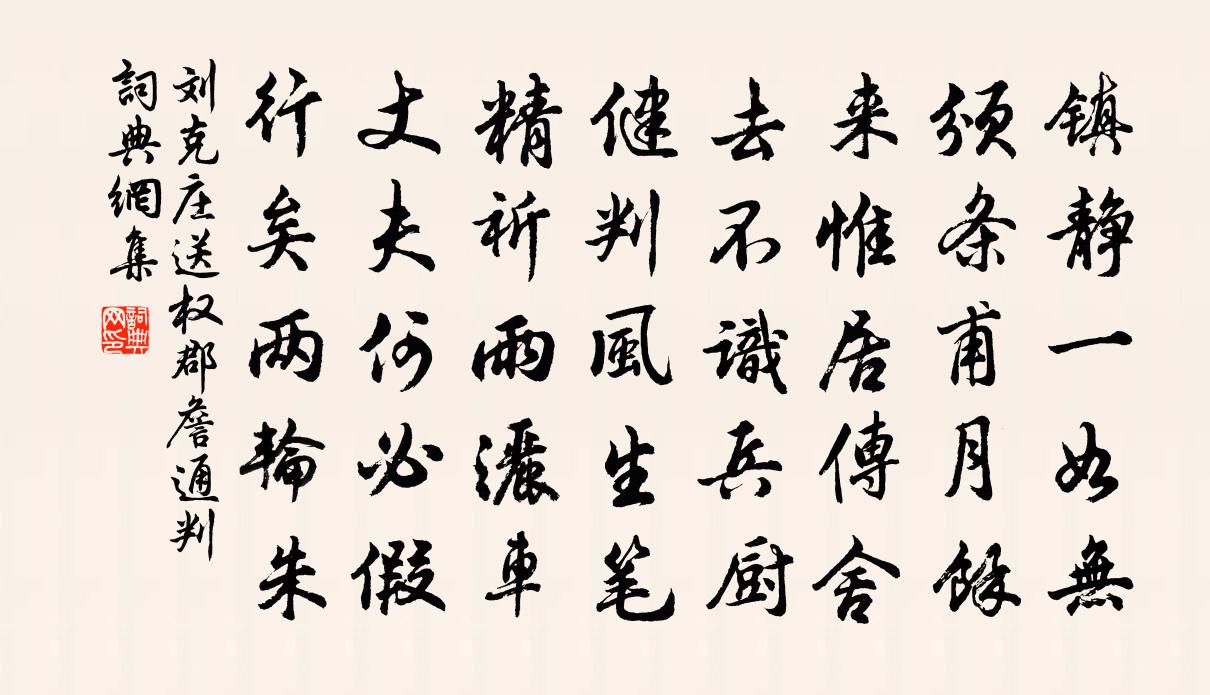 镇静一如無
须条甫月餘
来惟居傳舍
去不識兵厨
健判風生笔
精祈雨灑車
丈夫何必假
行矣两輪朱
刘克庄送权郡詹通判
詞典網集
詞典网印